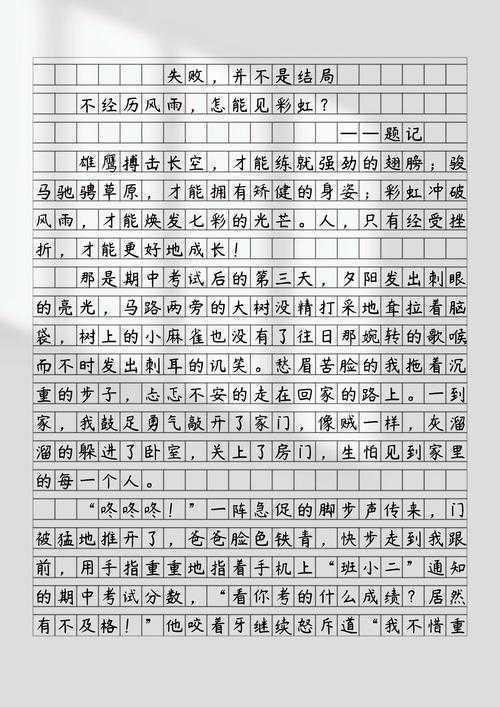 失败，并不是结局
不经历风雨，怎能见彩虹？
——题记
雄鹰搏击长空，才能练就强劲的翅膀；骏
马驰骋草原，才能拥有矫健的身姿；彩虹冲破
风雨，才能焕发七彩的光芒。人，只有经受挫
折，才能更好地成长！
那是期中考试后的第三天，夕阳发出刺眼
的亮光，马路两旁的大树没精打采地耷拉着脑
袋，树上的小麻雀也没有了往日那婉转的歌喉
而不时发出刺耳的讥笑。愁眉苦脸的我拖着沉
重的步子，忐忑不安的走在回家的路上。一到
家，我鼓足勇气敲开了家门，像贼一样，灰溜
溜的躲进了卧室，关上了房门，生怕见到家里
的每一个人。
“咚咚咚！”一阵急促的脚步声传来，门
被猛地推开了，爸爸脸色铁青，快步走到我跟
前，用手指重重地指着手机上“班小二”通知
的期中考试分数，“看你考的什么成绩？居然
有不及格！”他咬着牙继续怒斥道“我不惜重